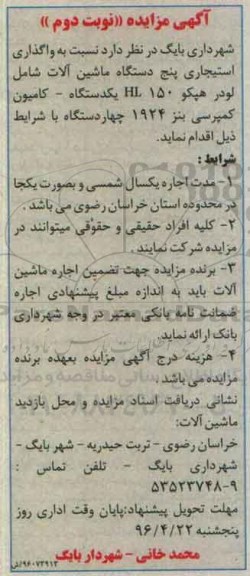 آگهی مزایده ((نوبت دوم ))
شهرداری بایگ در نظر دارد نسبت به واگذاری
استیجاری پنج دستگاه ماشین آلات شامل
لودر هپکو HL ۱۵۰ یکدستگاه - کامیون
کمپرسی بنز ۱۹۲۴ چهاردستگاه با شرایط
ذیل اقدام نماید.
شرایط :
۱- مدت اجاره یکسال شمسی و بصورت یکجا
در محدوده استان خراسان رضوی می باشد .
۲- کلیه افراد حقیقی و حقوقی میتوانند در
مزایده شرکت نمایند .
۳- برنده مزایده جهت تضمین اجاره ماشین
آلات باید به اندازه مبلغ پیشنهادی اجاره
ضمانت نامه بانکی معتبر در وجه شهرداری
بانک ارائه نماید.
۴- هزینه درج آگهی مزایده بعهده برنده
مزایده می باشد .
نشانی دریافت اسناد مزایده و محل بازدید
ماشین آلات:
خراسان رضوی - تربت حیدریه - شهر بایگ -
شهرداری بایگ - تلفن تماس :
۵۳۵۲۳۷۴۸-۹
مهلت تحویل پیشنهاد:پایان وقت اداری روز
پنجشنبه ۹۶/۴/۲۲
محمد خانی - شهردار بایگ
۹۶۰۷۳۹۱۳/ش